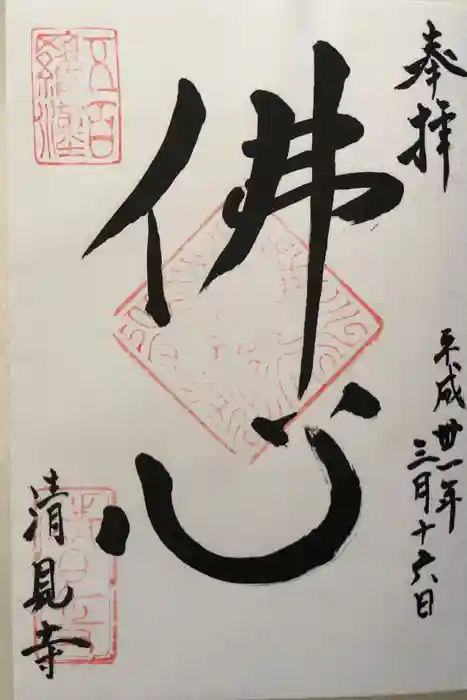 奉拝
平成廿一年
三月十六日
佛心
五百羅漢
清見寺